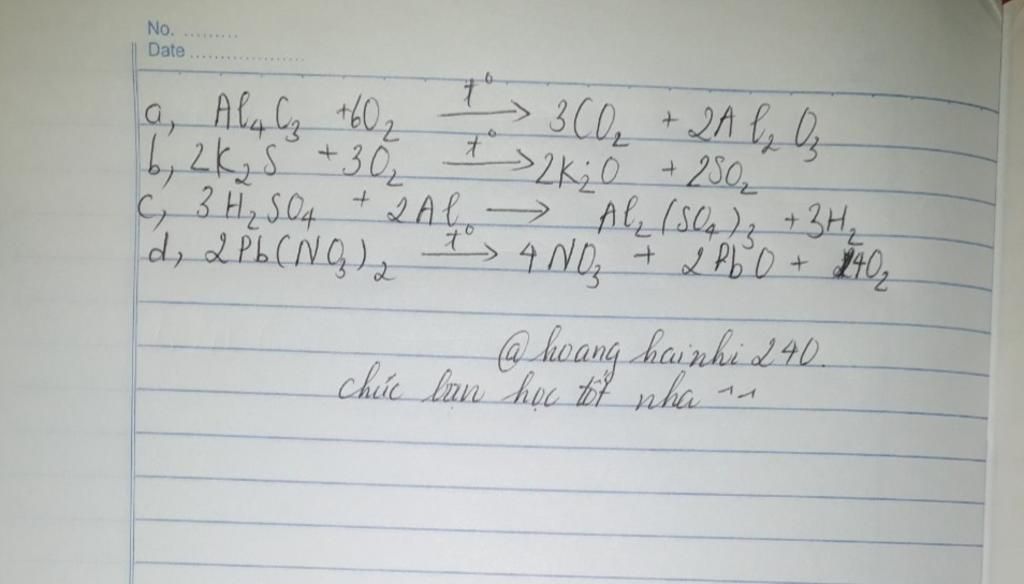 No. .........
Date ...................
a, Al₄C₃ +6O₂ —t°→ 3CO₂ + 2Al₂O₃
b, 2K₂S + 3O₂ —t°→ 2K₂O + 2SO₂
c, 3H₂SO₄ + 2Al → Al₂(SO₄)₃ + 3H₂
d, 2Pb(NO₃)₂ —t°→ 4NO₃ + 2PbO + 4O₂
@hoanghainhi240.
chúc bạn học tốt nha ^^